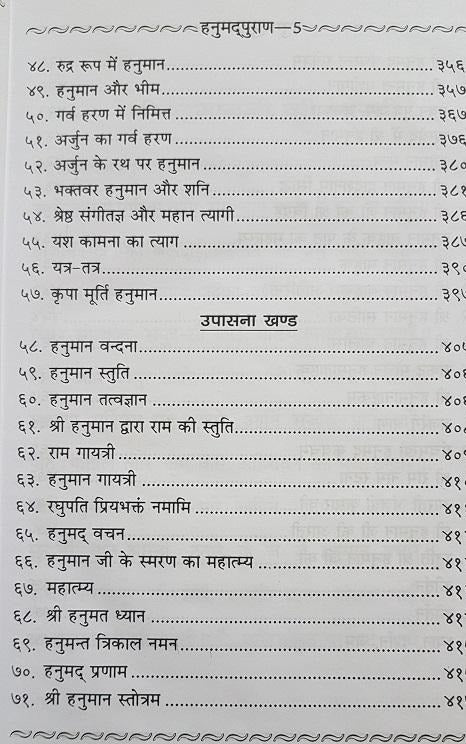 हनुमद्पुराण—5
४८. रुद्र रूप में हनुमान........................ ३५६
४९. हनुमान और भीम........................ ३५७
५०. गर्व हरण में निमित्त........................ ३६७
५१. अर्जुन का गर्व हरण........................ ३७६
५२. अर्जुन के रथ पर हनुमान........................ ३८०
५३. भक्तवर हनुमान और शनि........................ ३८१
५४. श्रेष्ठ संगीतज्ञ और महान त्यागी........................ ३८६
५५. यश कामना का त्याग........................ ३८७
५६. यत्र-तत्र........................ ३९०
५७. कृपा मूर्ति हनुमान........................ ३९७
उपासना खण्ड
५८. हनुमान वन्दना........................
५९. हनुमान स्तुति........................
६०. हनुमान तत्वज्ञान........................
६१. श्री हनुमान द्वारा राम की स्तुति........................
६२. राम गायत्री........................
६३. हनुमान गायत्री........................
६४. रघुपति प्रियभक्तं नमामि........................
६५. हनुमद् वचन........................
६६. हनुमान जी के स्मरण का महात्म्य........................
६७. महात्म्य........................
६८. श्री हनुमत ध्यान........................
६९. हनुमन्त त्रिकाल नमन........................
७०. हनुमद् प्रणाम........................
७१. श्री हनुमान स्तोत्रम........................